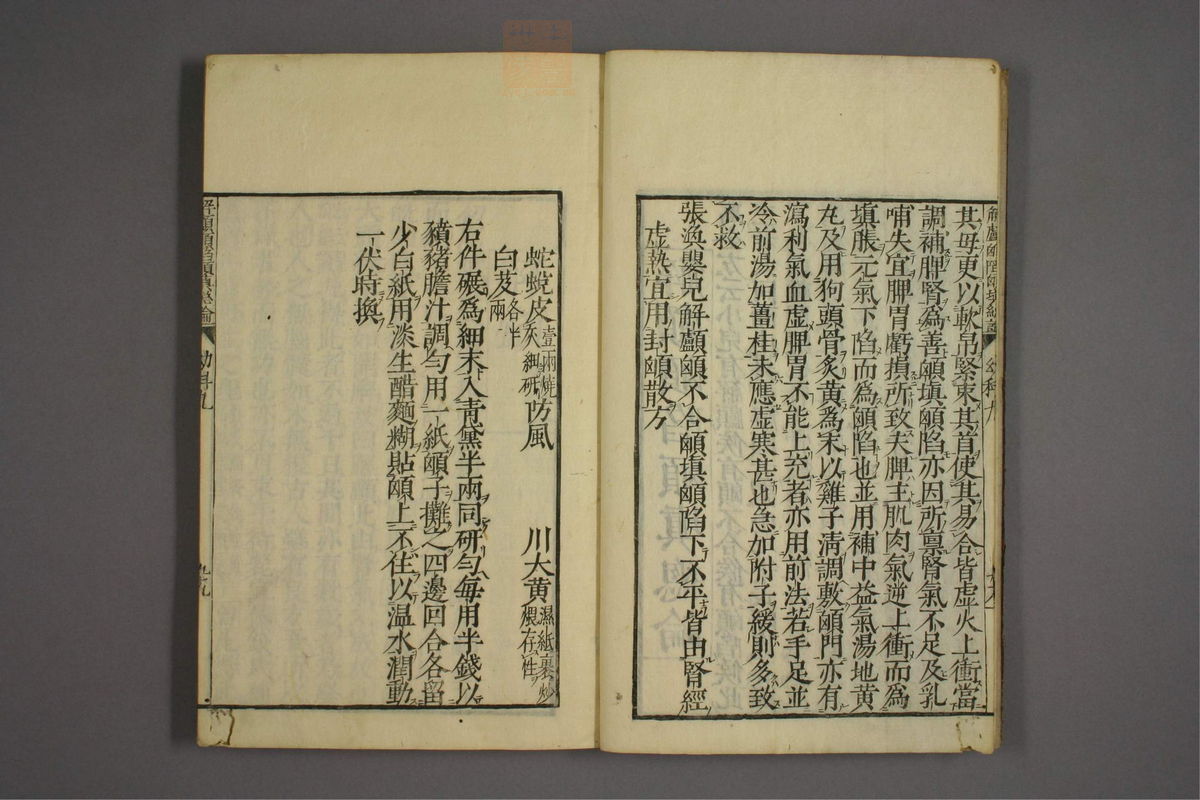 其母更以軟帛緊束其首使其易合皆虛火上衝當
調補脾腎爲善顖填顖陷亦因所禀腎氣不足及乳
哺失宜脾胃虧損所致夫脾主肌肉氣逆上衝而爲
填脹元氣下陷而爲顖陷也並用補中益氣湯地黃
丸及用狗頭骨炙黃爲末以雞子清調敷顖門亦有
瀉利氣血虛脾胃不能上充者亦用前法若手足並
冷前湯加薑桂未應虛寒甚也急加附子緩則多致
不救
張渙嬰兒解顱顖不合顖填顖陷下不平皆由腎經
虛熱宜用封顖散方
蛇蛻皮壹兩燒灰細研 防風 川大黃濕紙裹炒煨存性
白芟各半兩
右件碾爲細末入青黛半兩同研勻每用半錢以
豶猪膽汁調勻用一紙顖子攤之四邊回合各留
少白紙用淡生醋麵糊貼顖上不住以温水潤動
一伏時換
幼科九